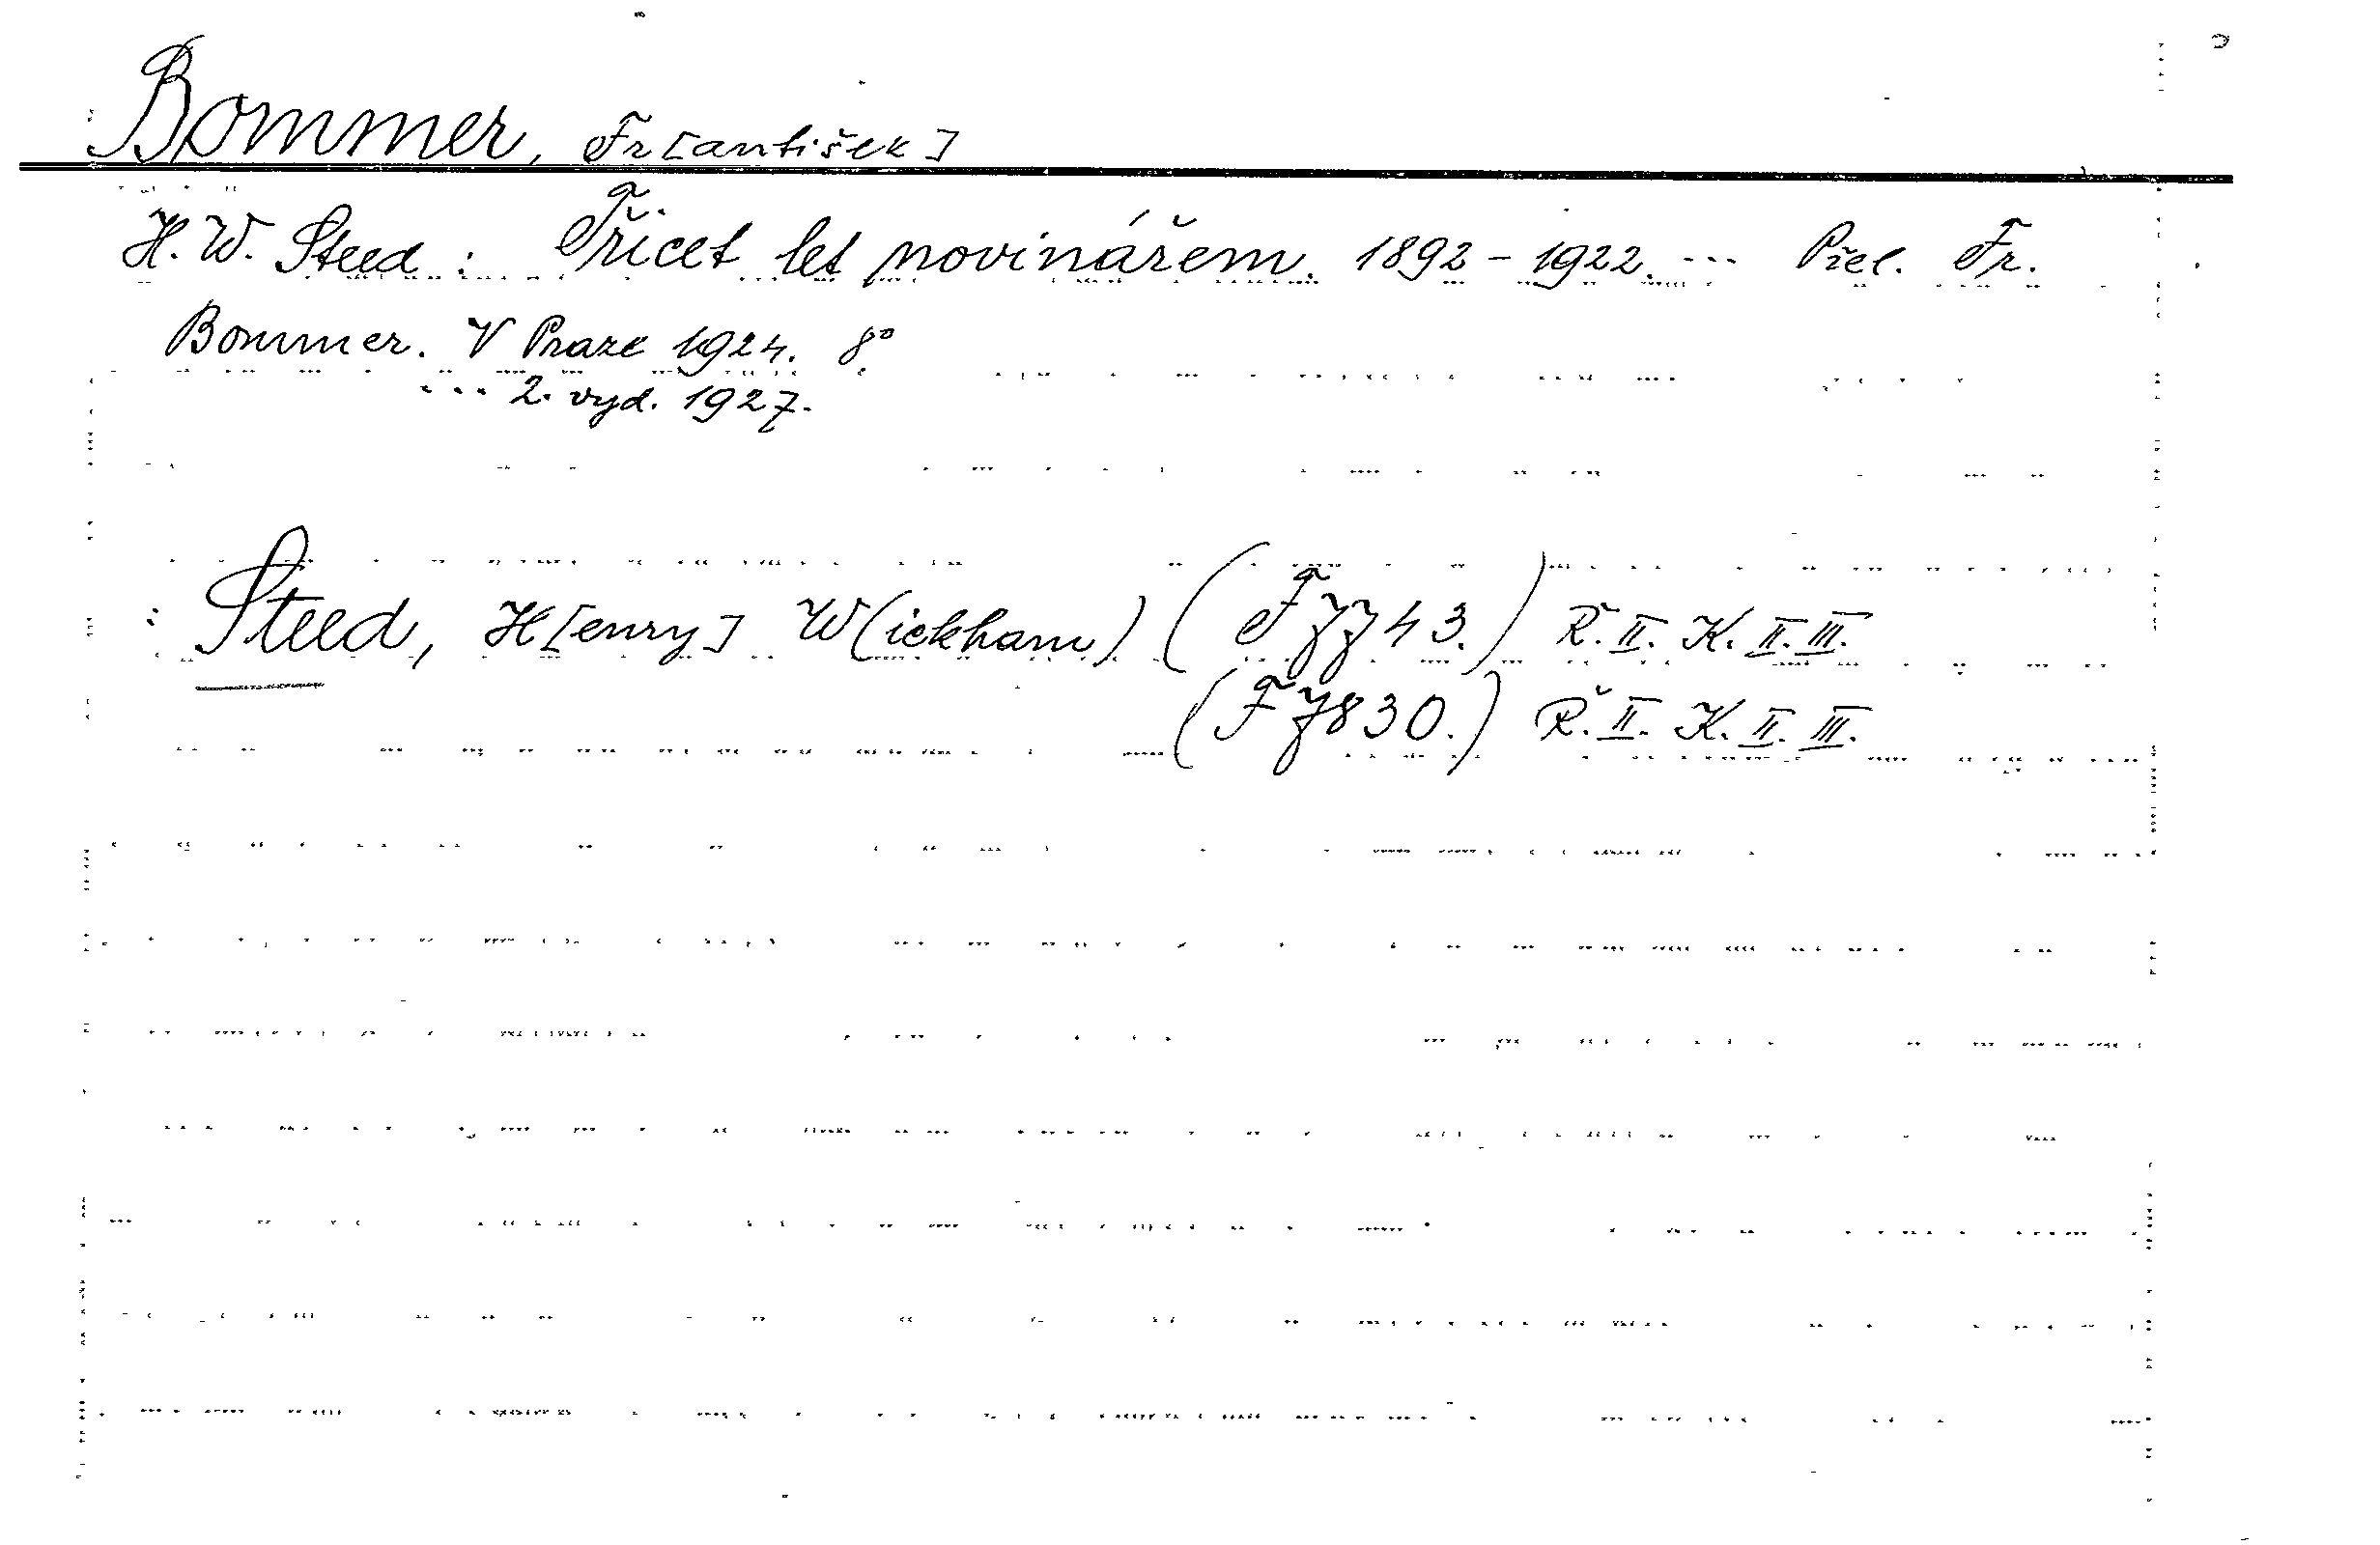 Bommer, Fr[antišek]
H. W. Steed : Třicet let novinářem. 1892 - 1922. ... Přel. Fr.
Bommer. V Praze 1924. 8°
... 2. vyd. 1927.
Steed, H[enry] W(ickham) (F 7743.) Ř. II. K. II. III.
(F 7830.) Ř. II. K. II. III.